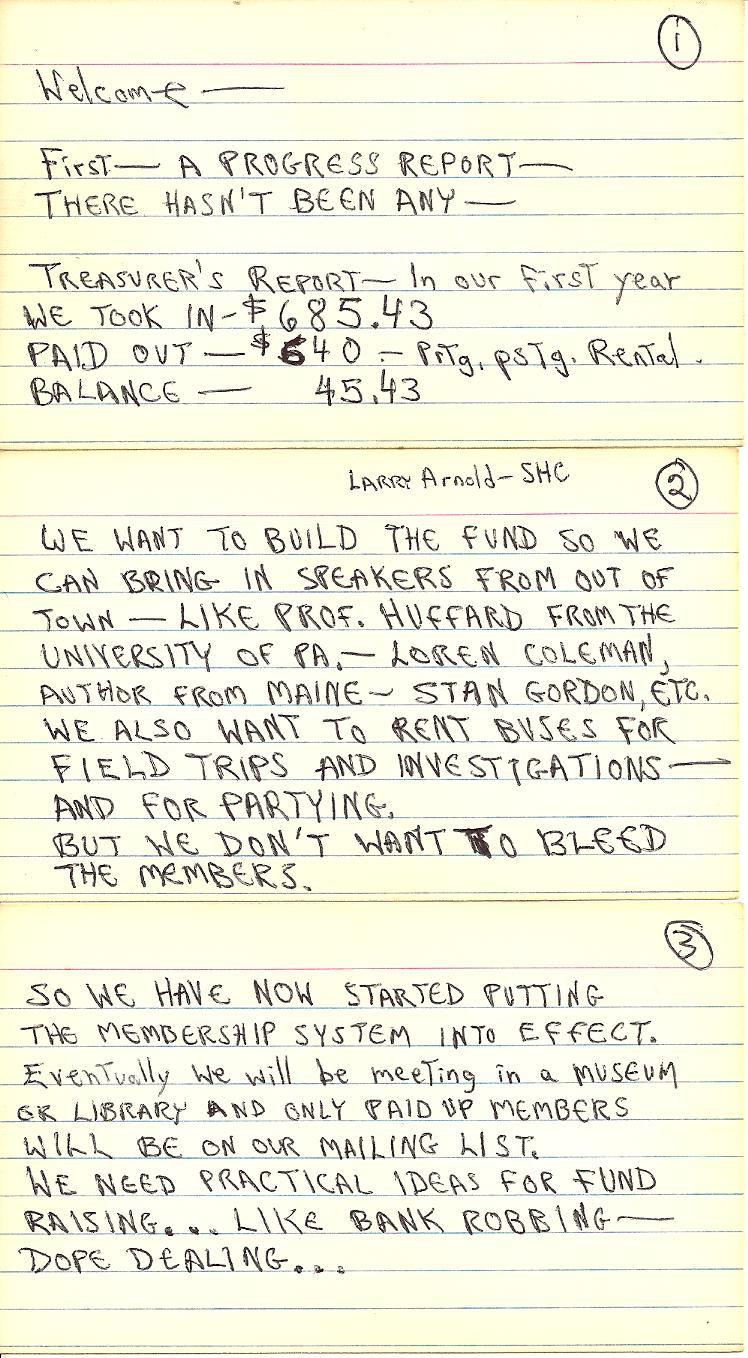 1
Welcome —
First — A PROGRESS REPORT —
THERE HASN'T BEEN ANY —
TREASURER'S REPORT — In our first year
WE TOOK IN - $685.43
PAID OUT — $640 — Prtg. pstg. Rental.
BALANCE — 45.43
LARRY Arnold - SHC 2
WE WANT TO BUILD THE FUND SO WE
CAN BRING IN SPEAKERS FROM OUT OF
TOWN — LIKE PROF. HUFFARD FROM THE
UNIVERSITY OF PA. — LOREN COLEMAN,
AUTHOR FROM MAINE — STAN GORDON, ETC.
WE ALSO WANT TO RENT BUSES FOR
FIELD TRIPS AND INVESTIGATIONS —
AND FOR PARTYING.
BUT WE DON'T WANT TO BLEED
THE MEMBERS.
3
SO WE HAVE NOW STARTED PUTTING
THE MEMBERSHIP SYSTEM INTO EFFECT.
Eventually we will be meeting in a MUSEUM
OR LIBRARY AND ONLY PAID UP MEMBERS
WILL BE ON OUR MAILING LIST.
WE NEED PRACTICAL IDEAS FOR FUND
RAISING... LIKE BANK ROBBING —
DOPE DEALING...